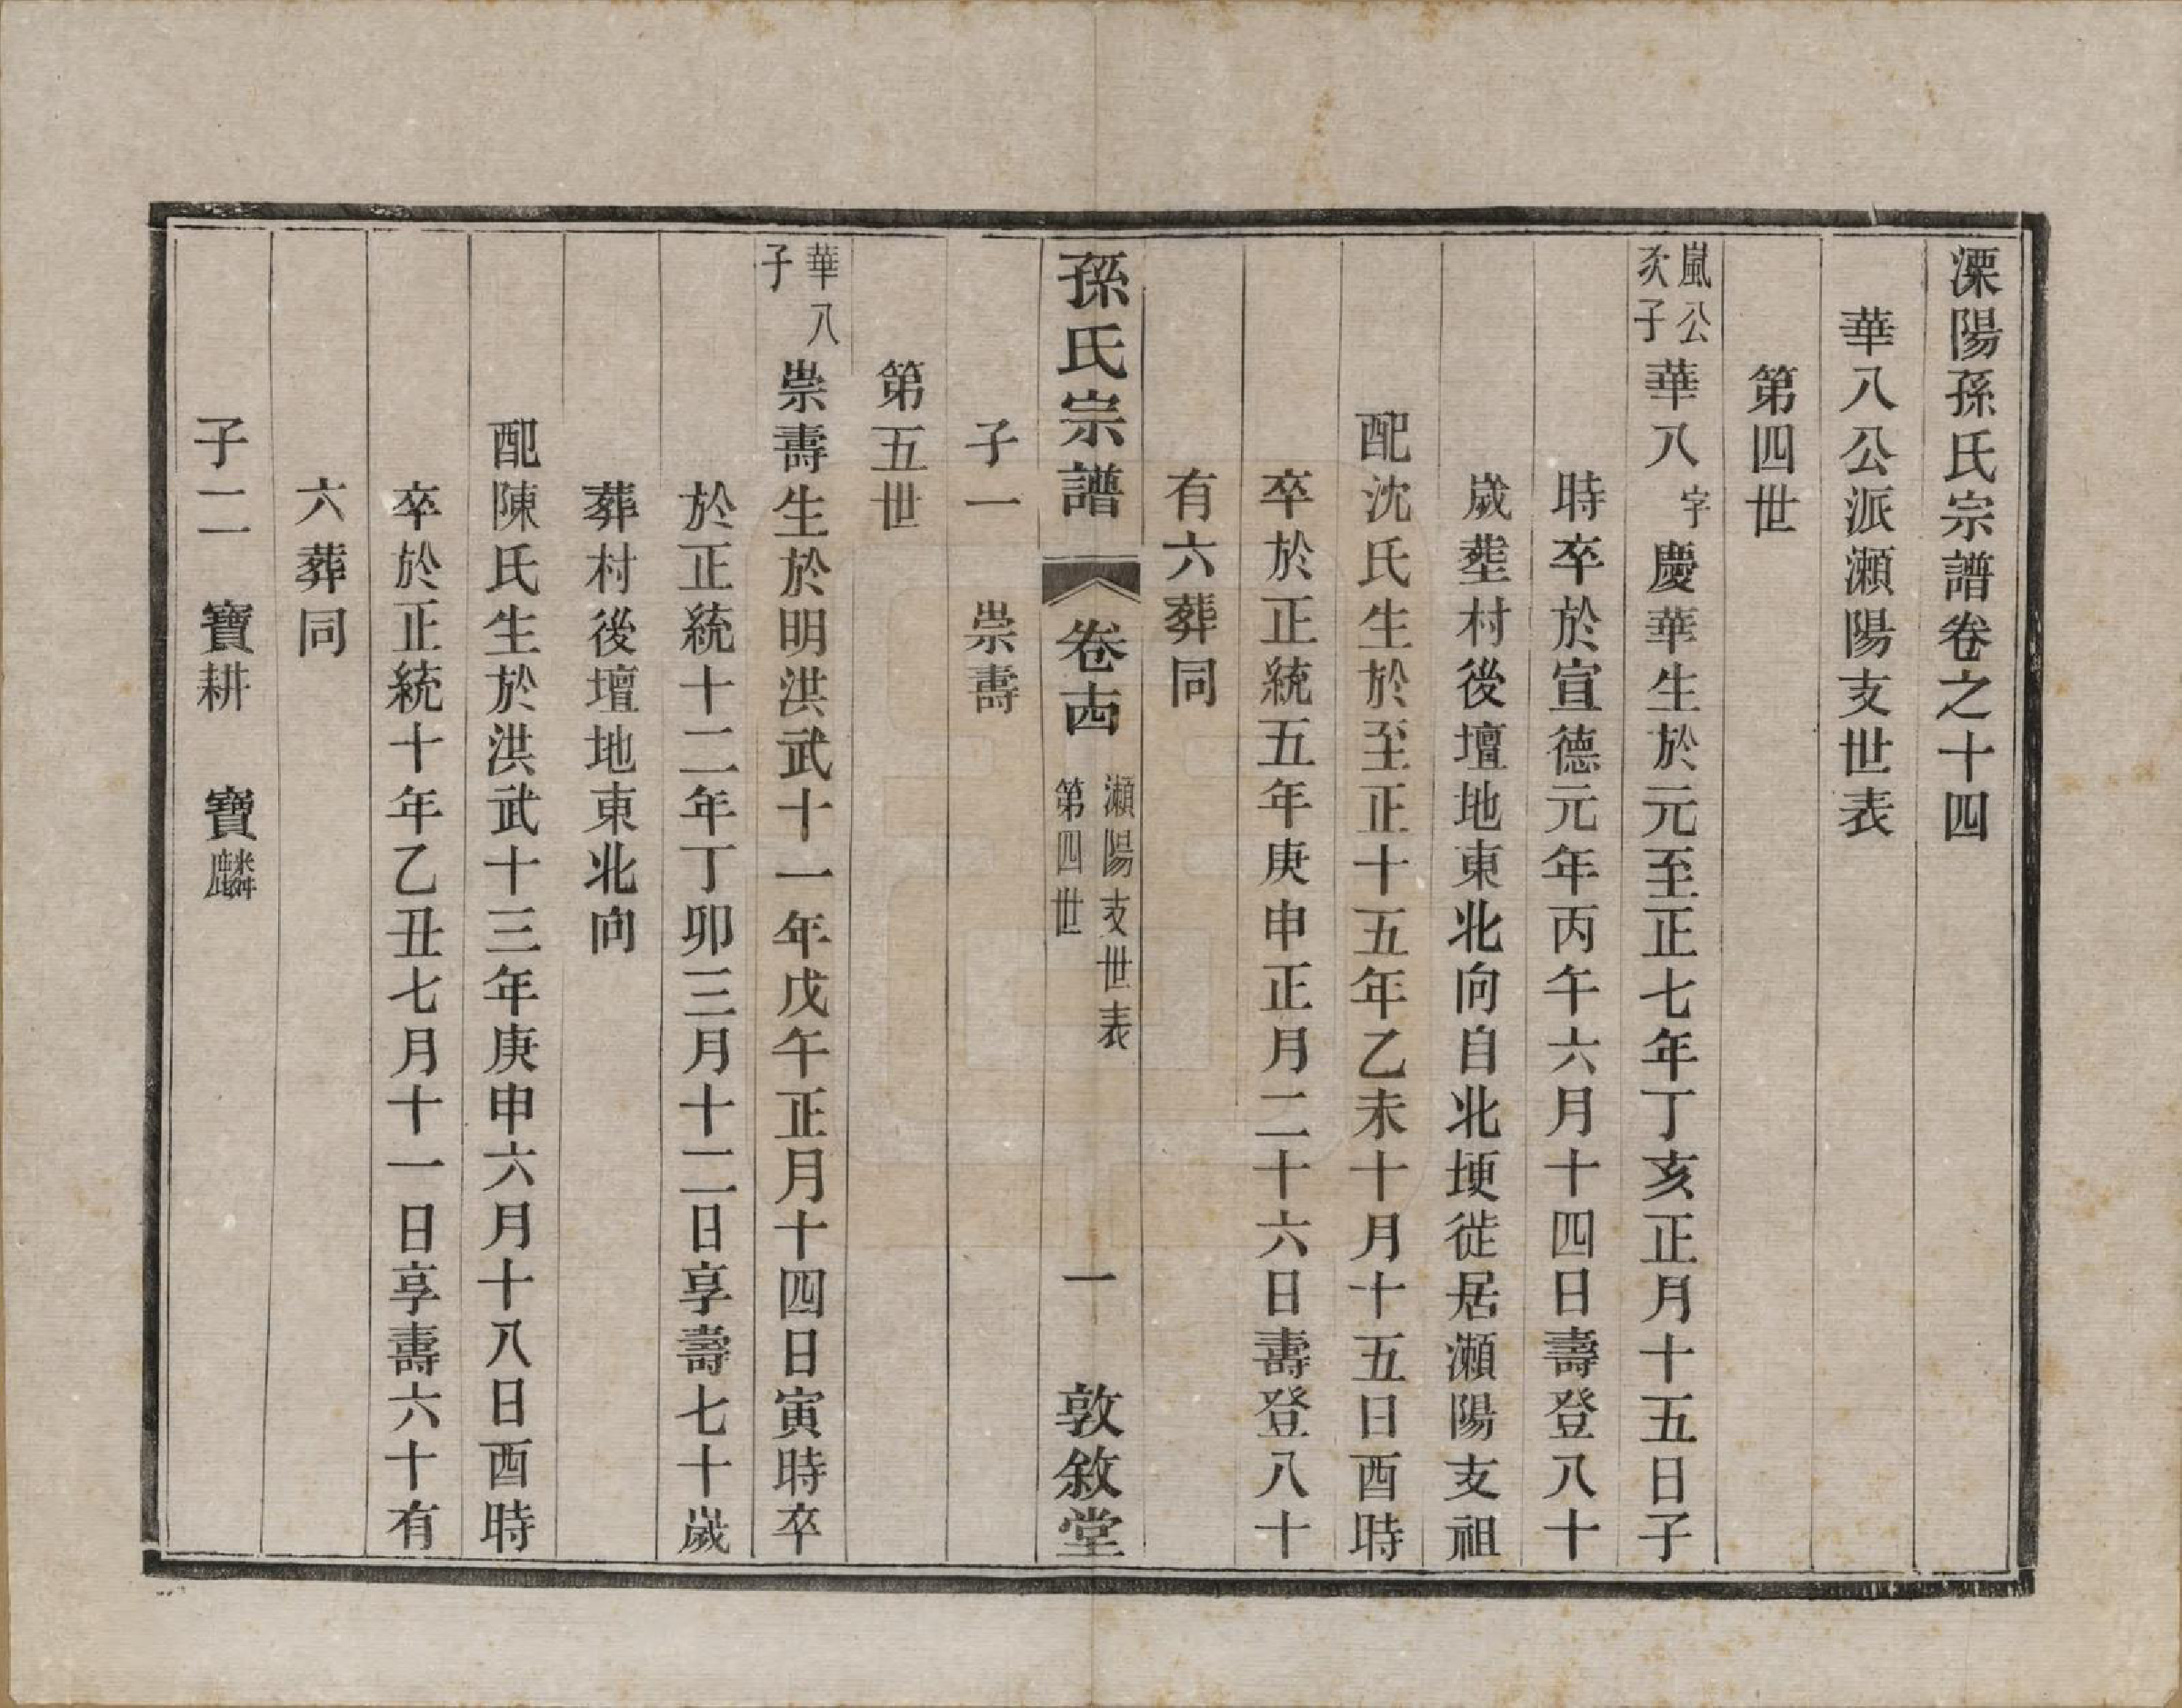 溧陽孫氏宗譜卷之十四
華八公派瀨陽支世表
第四世
嵐公次子華八字慶華生於元至正七年丁亥正月十五日子
時卒於宣德元年丙午六月十四日壽登八十
歲塟村後壇地東北向自北埂徙居瀨陽支祖
配沈氏生於至正十五年乙未十月十五日酉時
卒於正統五年庚申正月二十六日壽登八十
有六葬同
孫氏宗譜 卷十四 瀨陽支世表 第四世 一 敦敘堂
子一 崇壽
第五世
華八子崇壽生於明洪武十一年戊午正月十四日寅時卒
於正統十二年丁卯三月十二日享壽七十歲
葬村後壇地東北向
配陳氏生於洪武十三年庚申六月十八日酉時
卒於正統十年乙丑七月十一日享壽六十有
六葬同
子二 寶耕 寶麟